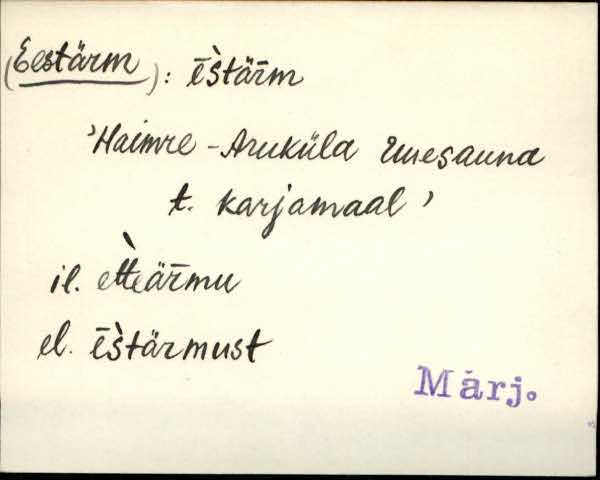 (Eestärm): ēs̀tär̄m
'Haimre-Aruküla Uuesauna
t. karjamaal'
il.
el. ēs̀tärmust
Märj.